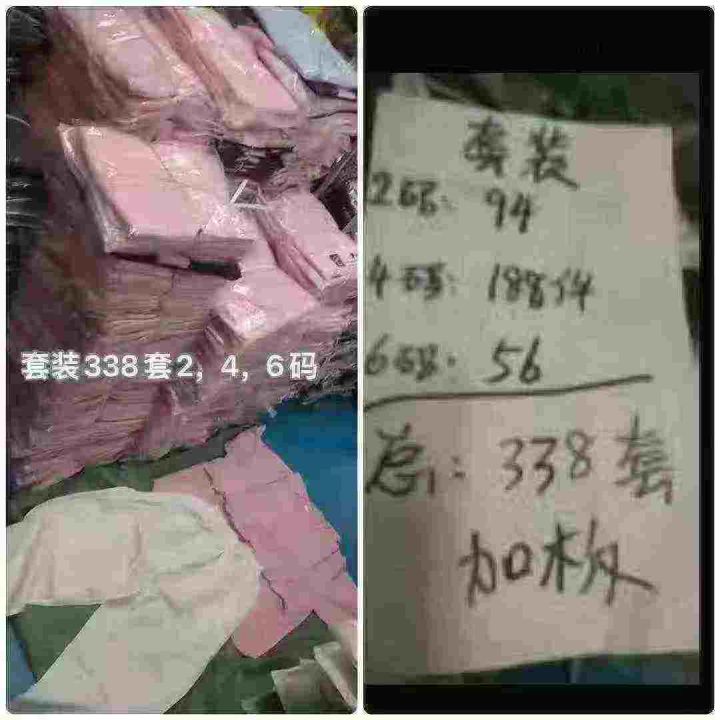 套装338套2，4，6码
套装
2码: 94
4码: 188件
6码: 56
总: 338套
加板